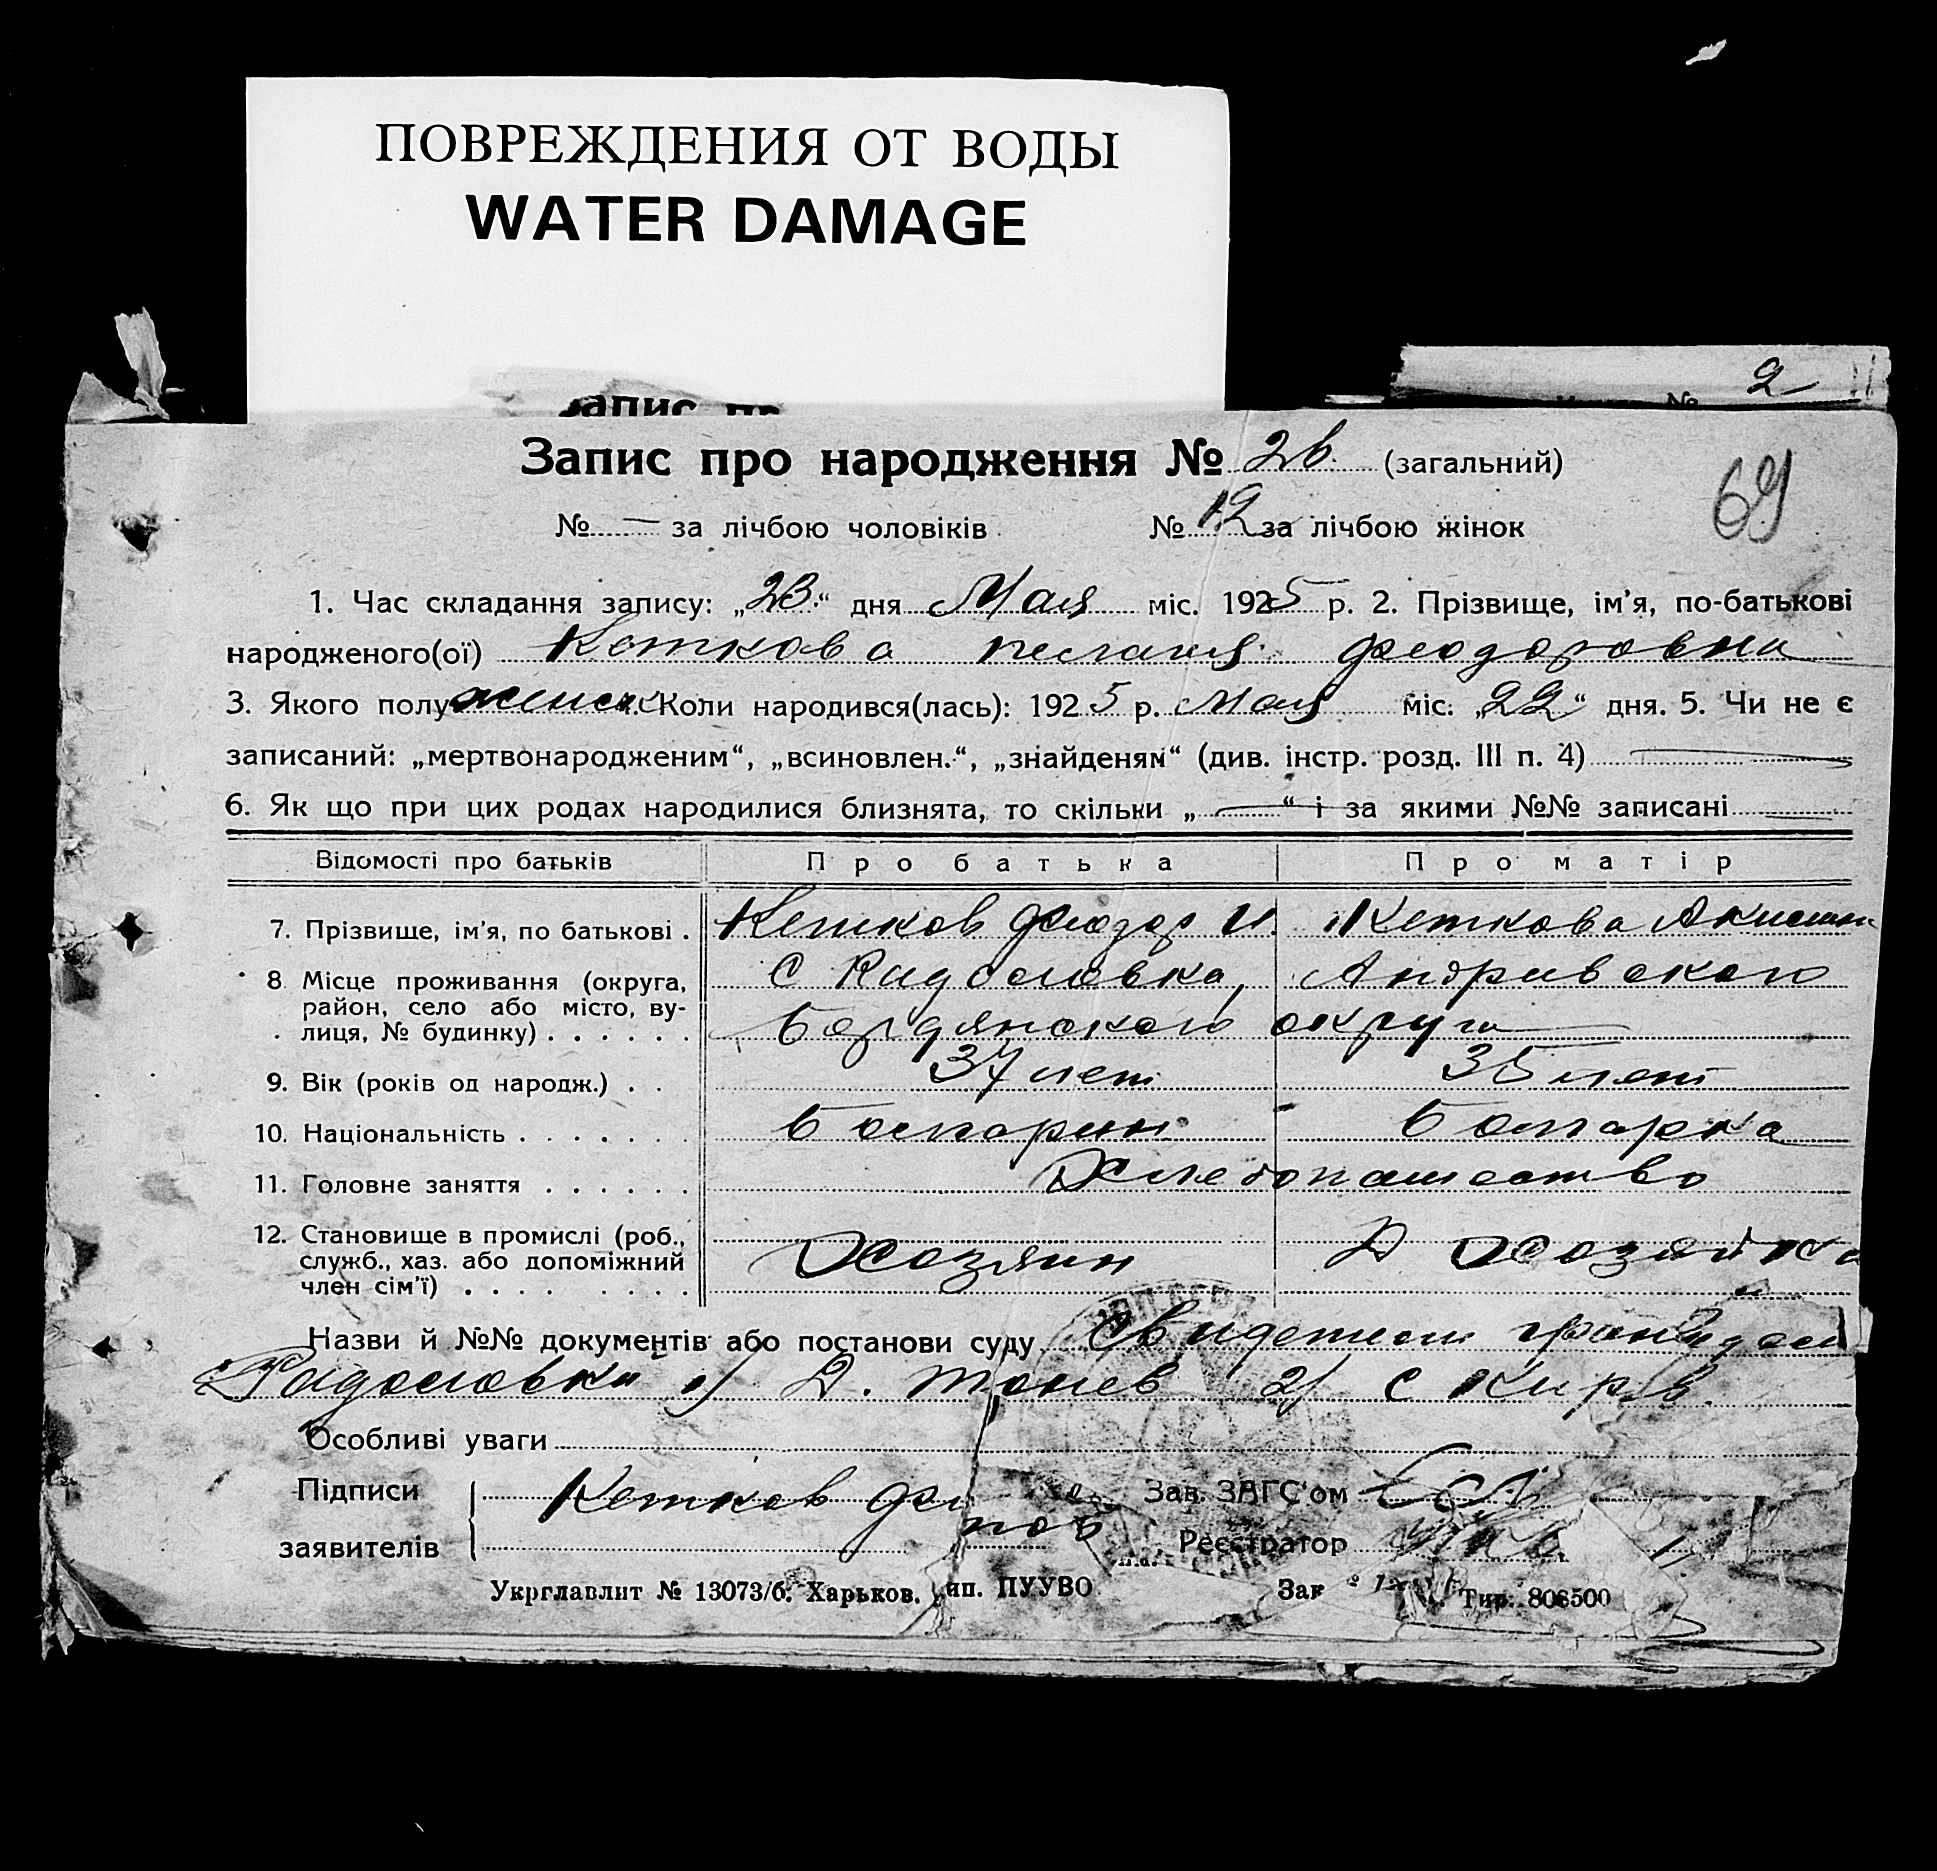 ПОВРЕЖДЕНИЯ ОТ ВОДЫ
WATER DAMAGE
2
Запис про народження № 26. (загальний)
69
№ — за лічбою чоловіків № 12 за лічбою жінок
1. Час складання запису: „23“ дня Мая міс. 1925 р. 2. Прізвище, ім’я, по-батькові
народженого(ої) Кеткова Пелагия Феодоровна
3. Якого полу женск. Коли народився(лась): 1925 р. Мая міс. „22“ дня. 5. Чи не є
записаний: „мертвонародженим“, „всиновлен.“, „знайденям“ (див. інстр. розд. III п. 4) —
6. Як що при цих родах народилися близнята, то скільки „—“ і за якими №№ записані —
Відомості про батьків Про батька Про матір
7. Прізвище, ім’я, по батькові . Кетков Феодор И. Кеткова
8 Місце проживання (округа, район, село або місто, вулиця, № будинку) . . . . . . С Радоловка, Андривского
Бердянского округа
9. Вік (років од народж.) . . 37 лет 35 лет
10. Національність . . . . . . . Болгарин Болгарка
11. Головне заняття . . . . . . Хлебопашество
12. Становище в промислі (роб., служб., хаз. або допоміжний член сім’ї) . . . . . . . . Хозяин Д Хозяйка
Назви й №№ документів або постанови суду Свидетели граждан
Радоловки 1) Д. Тонев 2) С Киров.
Особливі уваги
Підписи Кетков Зав. ЗАГС’ом
заявителів Реєстратор
Укрглавлит № 13073/б. Харьков. ип. ПУУВО Зак Тир. 806500